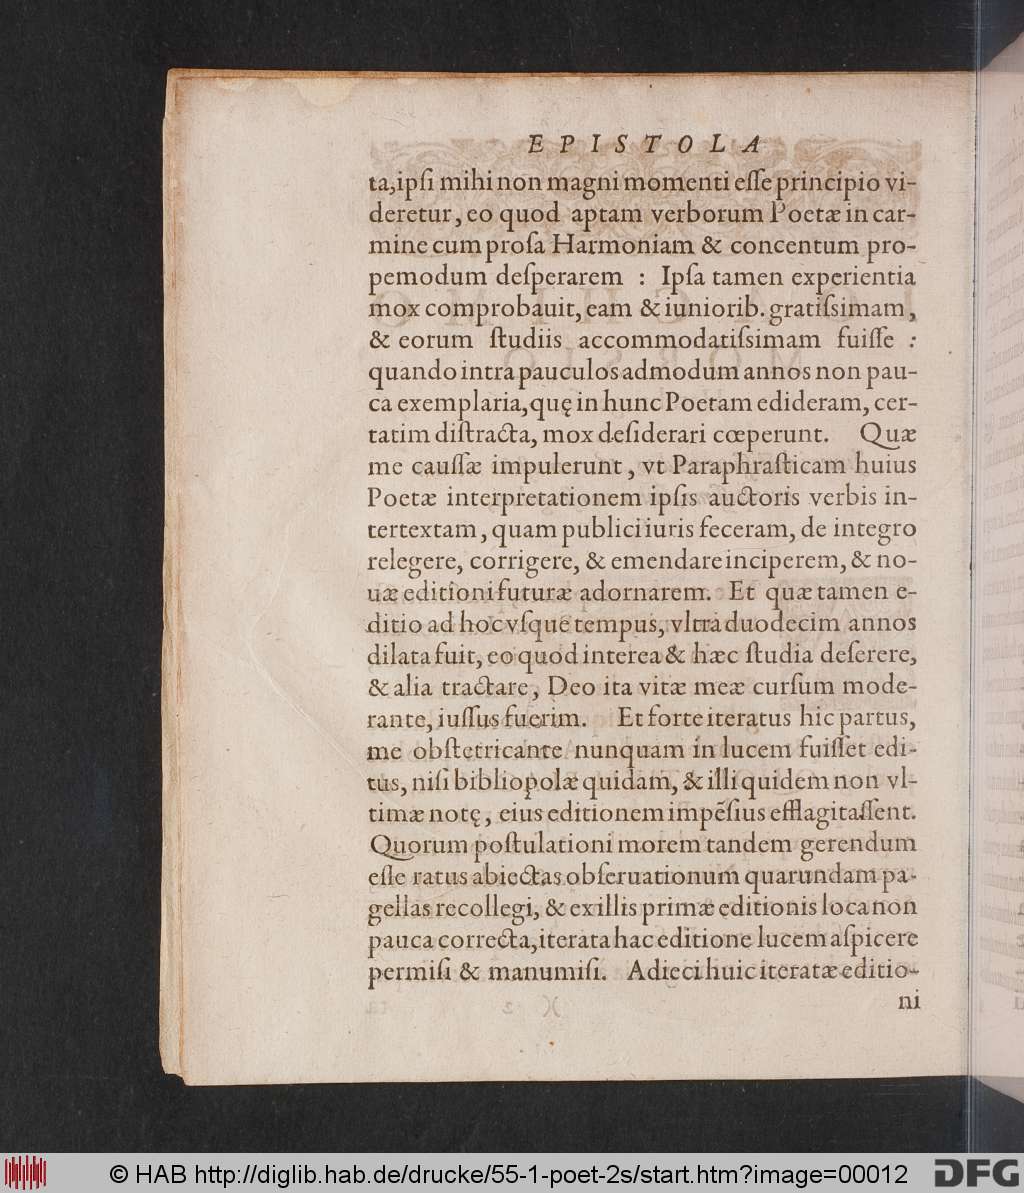 EPISTOLA
ta,ipſi mihi non magni momenti eſſe principio vi-
deretur, eo quod aptam verborum Poetæ in car-
mine cum proſa Harmoniam & concentum pro-
pemodum deſperarem : Ipſa tamen experientia
mox comprobauit, eam & iuniorib. gratiſsimam,
& eorum ſtudiis accommodatiſsimam fuiſſe :
quando intra pauculos admodum annos non pau-
ca exemplaria, quę in hunc Poetam edideram, cer-
tatim diſtracta, mox deſiderari cœperunt. Quæ
me cauſſæ impulerunt, vt Paraphraſticam huius
Poetæ interpretationem ipſis auctoris verbis in-
tertextam, quam publici iuris feceram, de integro
relegere, corrigere, & emendare inciperem, & no-
uæ editioni futuræ adornarem. Et quæ tamen e-
ditio ad hoc vſque tempus, vltra duodecim annos
dilata fuit, eo quod interea & hæc ſtudia deſerere,
& alia tractare, Deo ita vitæ meæ curſum mode-
rante, iuſſus fuerim. Et forte iteratus hic partus,
me obſtetricante nunquam in lucem fuiſſet edi-
tus, niſi bibliopolæ quidam, & illi quidem non vl-
timæ notę, eius editionem impẽſius efflagitaſſent.
Quorum poſtulationi morem tandem gerendum
eſſe ratus abiectas obſeruationum quarundam pa-
gellas recollegi, & ex illis primæ editionis loca non
pauca correcta, iterata hac editione lucem aſpicere
permiſi & manumiſi. Adieci huic iteratæ editio-
ni
© HAB http://diglib.hab.de/drucke/55-1-poet-2s/start.htm?image=00012
DFG